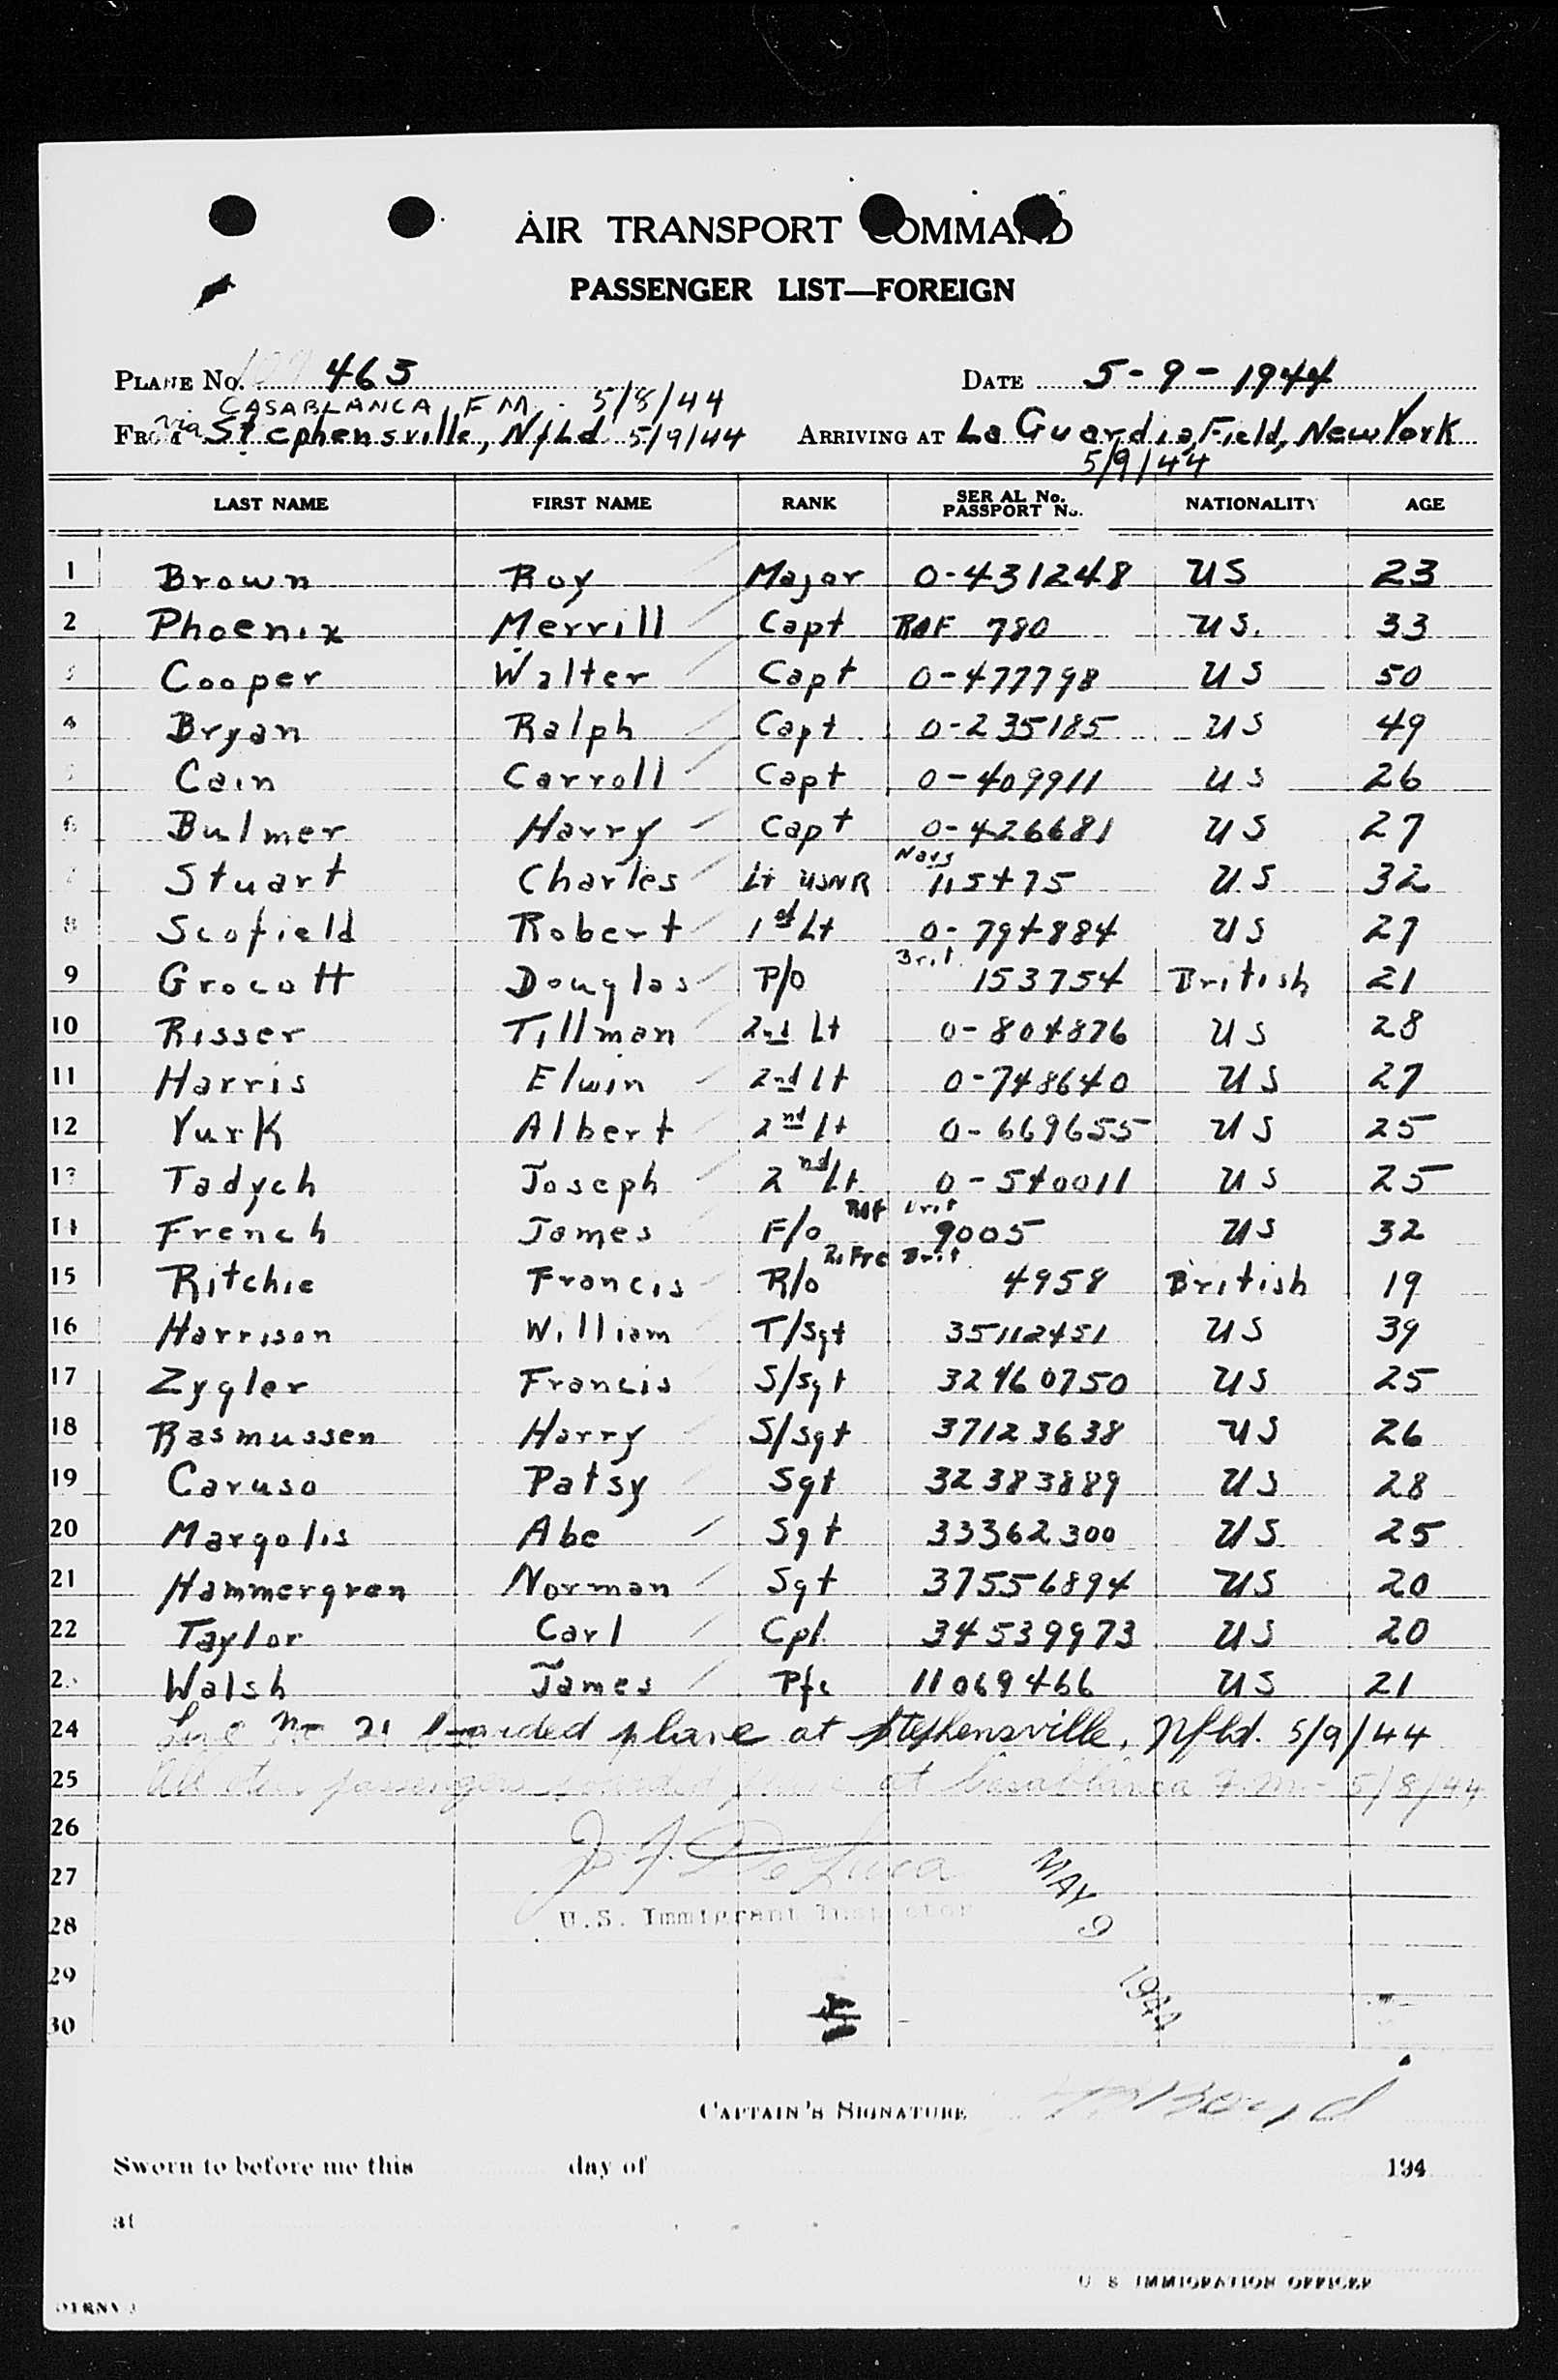 AIR TRANSPORT COMMAND
PASSENGER LIST—FOREIGN
PLANE No. 463 DATE 5-9-1944
CASABLANCA, F M, 5/8/44
FROM via Stephensville, Nfld 5/9/44 ARRIVING AT La Guardia Field, New York
5/9/44
LAST NAME FIRST NAME RANK SERIAL No. PASSPORT No. NATIONALITY AGE
1 Brown Roy Major 0-431248 US 23
2 Phoenix Merrill Capt RAF 780 US. 33
3 Cooper Walter Capt 0-477798 US 50
4 Bryan Ralph Capt 0-235185 US 49
5 Cain Carroll Capt 0-409911 US 26
6 Bulmer Harry Capt 0-426681 US 27
7 Stuart Charles Lt USNR Navy 115475 US 32
8 Scofield Robert 1st Lt 0-794884 US 27
9 Grocott Douglas P/O Brit. 153754 British 21
10 Risser Tillman 2nd Lt 0-804876 US 28
11 Harris Elwin 2nd Lt 0-748640 US 27
12 Yurk Albert 2nd Lt 0-669655 US 25
13 Tadych Joseph 2nd Lt 0-540011 US 25
14 French James F/O RAF Brit 9005 US 32
15 Ritchie Francis R/O Brit. 4958 British 19
16 Harrison William T/Sgt 35112451 US 39
17 Zygler Francis S/Sgt 32460750 US 25
18 Rasmussen Harry S/Sgt 37123638 US 26
19 Caruso Patsy Sgt 32383889 US 28
20 Margolis Abe Sgt 33362300 US 25
21 Hammergren Norman Sgt 37556894 US 20
22 Taylor Carl Cpl. 34539973 US 20
23 Walsh James Pfc 11069466 US 21
24 Line No 21 boarded plane at Stephensville, Nfld. 5/9/44
25 All other passengers boarded plane at Casablanca F.M.- 5/8/44
26
J. F. De Luca
27
MAY 9 1944
28 U.S. Immigrant Inspector
29
30
CAPTAIN'S SIGNATURE
Sworn to before me this day of 194
at
U S IMMIGRATION OFFICER